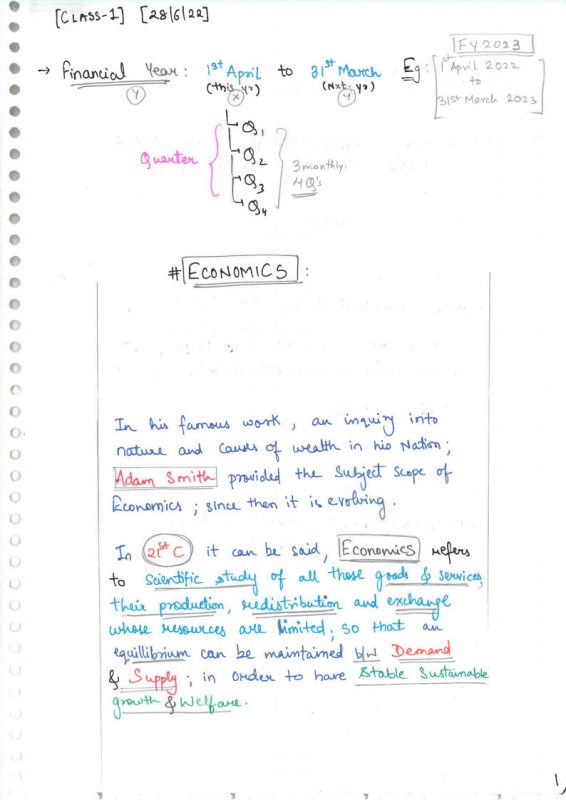 [CLASS-1] [28/6/22]
FY2023
→ Financial Year: 1st April to 31st March Eg: 1st April 2022
(Y) (this yr) (Nxt. yr) to
(X) (Y) 31st March 2023
Q1
Quarter Q2 3 monthly.
Q3 4 Q's
Q4
# ECONOMICS :
In his famous work, an inquiry into
nature and causes of wealth in his Nation;
Adam Smith provided the subject scope of
Economics; since then it is evolving.
In 21st C it can be said, Economics refers
to scientific study of all those goods & services,
their production, redistribution and exchange
whose resources are limited; so that an
equillibrium can be maintained b/w Demand
& Supply; in order to have Stable Sustainable
growth & Welfare.
1